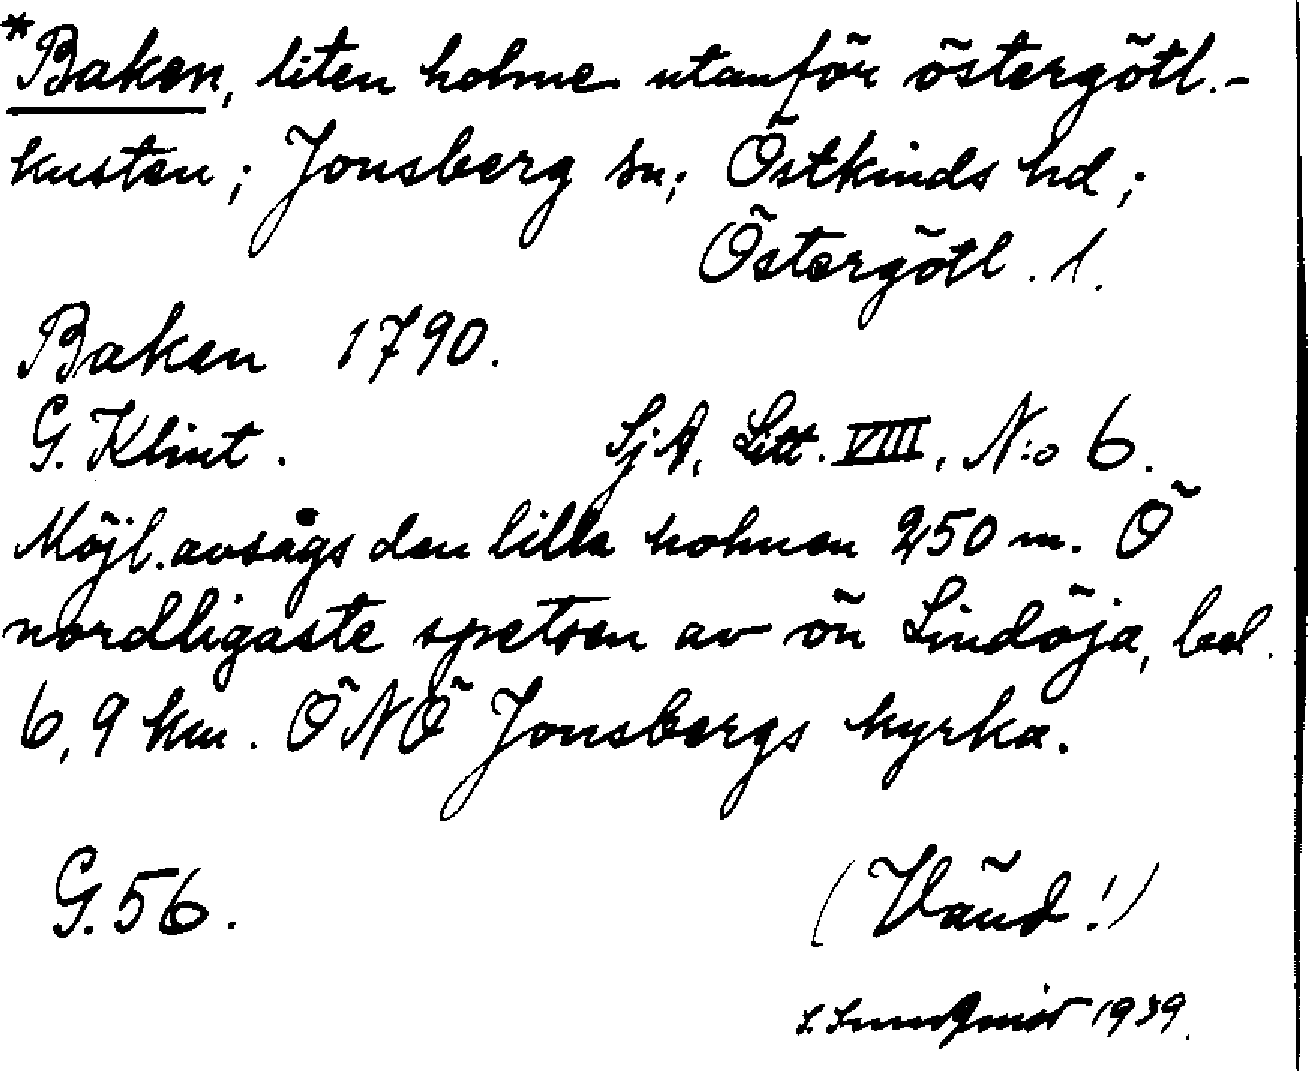 *Baken, liten holme utanför östergötl.-
kusten; Jonsberg sn; Östkinds hd;
Östergötl. l.
Baken 1790.
G. Klint. SjA, Litt. VIII, N:o 6.
Möjl. avsågs den lilla holmen 250 m. Ö
nordligaste spetsen av ön Lindöja, bel.
6,9 km. ÖNÖ Jonsbergs kyrka.
G. 56. (Vänd!)
1939.